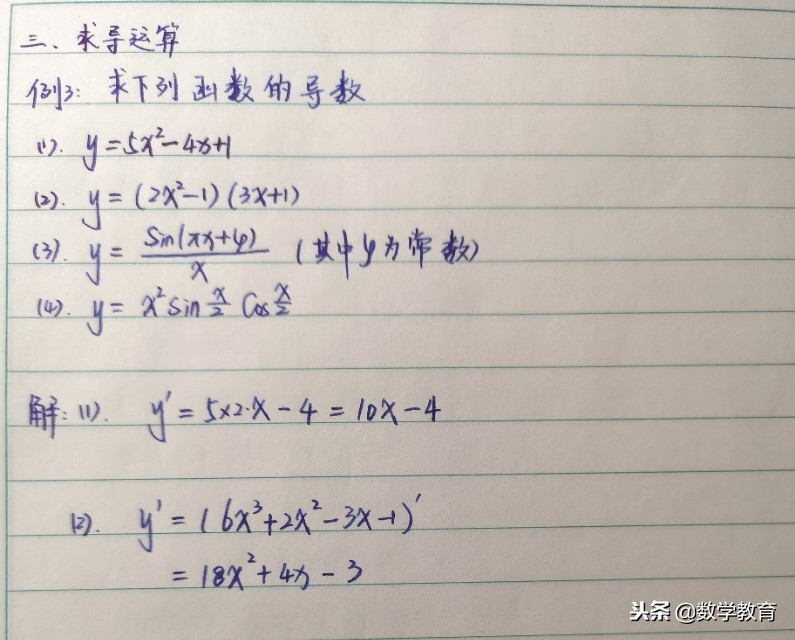 三、求导运算
例3: 求下列函数的导数
(1). y=5x²-4x+1
(2). y=(2x²-1)(3x+1)
(3). y= sin(πx+φ)/x (其中φ为常数)
(4). y= x²sin x/2 cos x/2
解: (1). y'=5×2·x-4=10x-4
(2). y'=(6x³+2x²-3x-1)'
=18x²+4x-3
头条 @数学教育